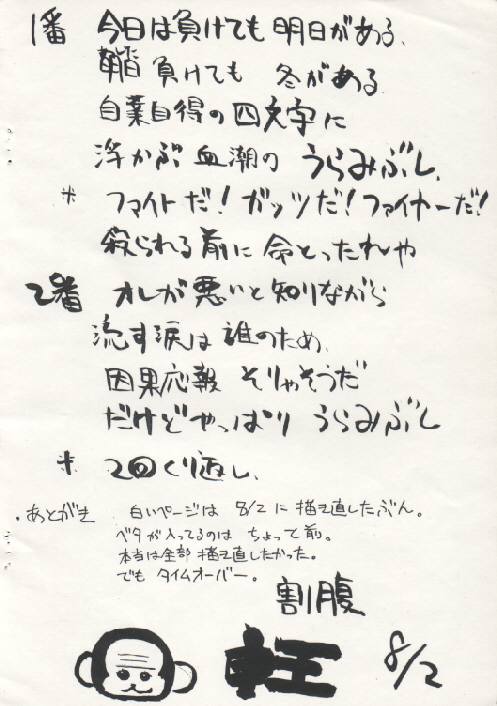 1番 今日は負けても 明日がある、
負けても 冬がある
自業自得の四文字に
浮かぶ血潮の うらみぶし、
* ファイトだ!ガッツだ!ファイヤーだ!
殺られる前に 命とったれや
2番 オレが悪いと知りながら
流す涙は誰のため、
因果応報 そりゃそうだ
だけどやっぱり うらみぶし
* 2回くり返し、
・あとがき 白いページは 8/2 に 描き直したぶん。
ベタが入ってるのは ちょって前。
本当は全部 描き直したかった。
でも タイムオーバー。
割腹
8/2